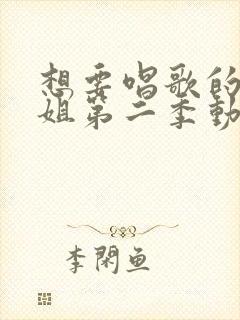 想要唱歌的
姐第二季動
李閑魚